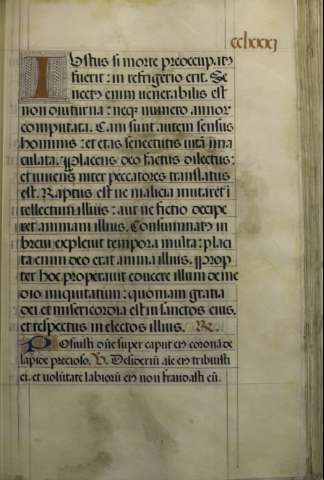 cclxxxj
Iustus si morte preoccupatꝰ
fuerit: in refrigerio erit. Se
nectꝰ enim uenerabilis est
non diuturna: neqꝫ numero annoꝝ
computata. Cani sunt autem sensus
hominis: et etas senectutis uita īma
culata. Placens deo factus dilectus:
et uiuens inter peccatores translatus
est. Raptus est ne malicia mutaret i
tellectum illius: aut ne fictio decipe
ret animam illius. Consummatꝰ in
breui expleuit tempora multa: placi
ta enim deo erat anima illius. Prop
ter hoc properauit educere illum de me
dio iniquitatum: quoniam gratia
dei et misericordia est in sanctos eius.
et respectus in electos illius. R.
Posuisti dn̄e super caput eiꝰ coronā de
lapide precioso. V. Desideriū aīe eiꝰ tribuisti
ei. et uolūtate labiorū eiꝰ non fraudasti eū.